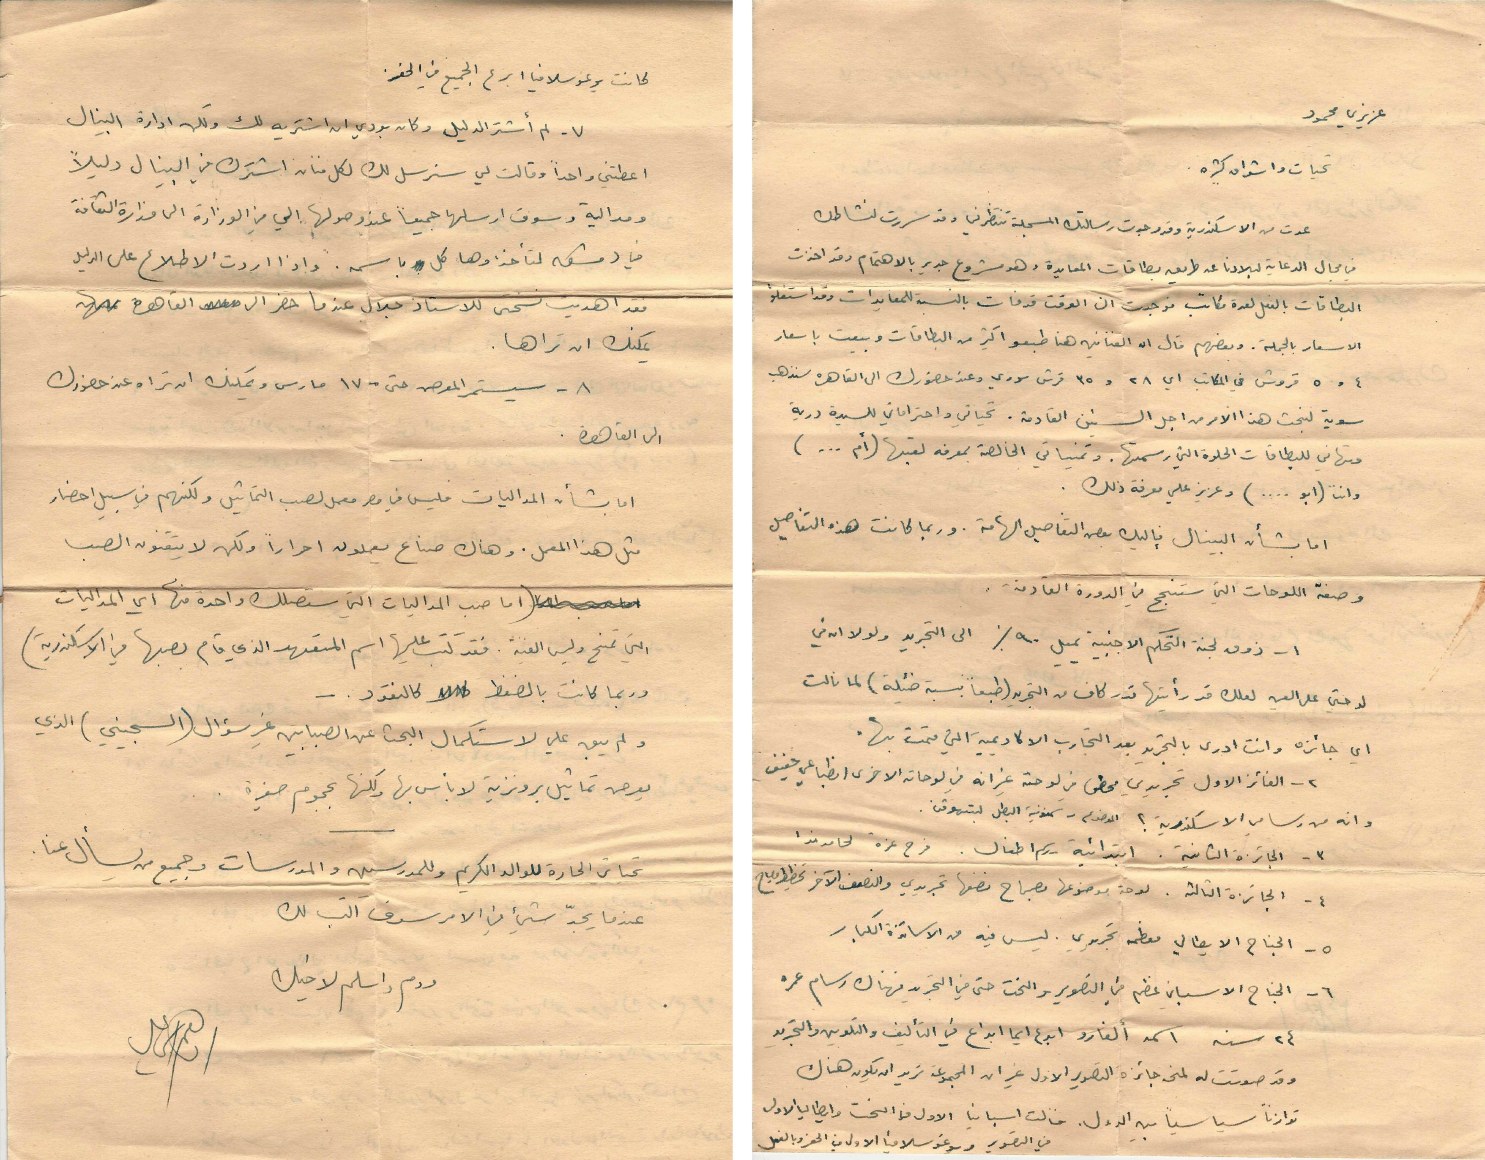 عزيزي محمود
تحيات واشواق كثيرة .
عدت من الاسكندرية وقد وجدت رسالتك المسجلة تنتظرني وقد سررت لنشاطك
في مجال الدعاية لبلادنا عن طريق بطاقات المعايدة وهو مشروع جدير بالاهتمام وقد اخذت
البطاقات بالفعل لعدة مكاتب فوجدت ان الوقت قد فات بالنسبة للمعايدات وقد استغلوا
الاسعار بالجملة . وبعضهم قال ان الفنانين هنا طبعوا اكثر من البطاقات وبيعت باسعار
٤ و ٥ قروش في المكاتب اي ٢٨ و ٣٥ قرش سوري وعند حضورك الى القاهرة سنذهب
سوية لبحث هذا الامر من اجل السنين القادمة . تحياتي واحتراماتي للسيدة درية
وتهاني للبطاقات الحلوة التي رسمتها . وتمنياتي الخالصة بمعرفة لقبها (أم ....)
وانت (ابو ....) وعزيز علي معرفة ذلك .
اما بشأن البينال فاليك بعض التفاصيل الهامة . وربما كانت هذه التفاصيل
وصفة اللوحات التي ستنجح في الدورة القادمة .
١ - ذوق لجنة التحكيم الاجنبية يميل ٩٠ ٪ الى التجريد ولولا ان في
لوحتي على العين لعلك قد رأيتها قدر كاف من التجريد (طبعاً بنسبة ضئيلة) لما نالت
اي جائزة وانت ادرى بالتجريد بعد التجارب الاكاديمية التي قمت بها .
٢ - الفائز الاول تجريدي محض في لوحته غير انه في لوحاته الاخرى انطباعي خفيف
وانه من رسامي الاسكندرية ؟ الموضوع
٣ - الجائزة الثانية . ابتدائية رسم اطفال . فرح غزة لحامد ندا
٤ - الجائزة الثالثة . لوحة موضوعها مصباح نصفها تجريدي والنصف الآخر تخطيط
٥ - الجناح الايطالي معظمه تجريدي . ليس فيه من الاساتذة الكبار
٦ - الجناح الاسباني عظيم في التصوير والنحت حتى في التجريد فهناك رسام عمره
٢٤ سنة اسمه ألفارو ابدع ايما ابداع في التأليف والتلوين والتجريد
وقد صوتت له لمنحه جائزة التصوير الاول غير ان المجموعة تريد ان يكون هناك
توازناً سياسياً بين الدول . فنالت اسبانيا الاول في النحت وايطاليا الاول
في التصوير ويوغوسلافيا الاول في الحفر وبالفعل
كانت يوغوسلافيا ابرع الجميع في الحفر .
٧ - لم أشتر الدليل وكان بودي ان اشتريه لك ولكن ادارة البينال
اعطتني واحداً وقالت لي سنرسل لك لكل فنان اشترك في البينال دليلاً
وميدالية وسوف ارسلها جميعاً عند وصولها إلي من الوزارة الى وزارة الثقافة
في دمشق لتأخذوها كل باسمه . واذا اردت الاطلاع على الدليل
فقد اهديت نسختي للاستاذ جلال عندما حضر الى القاهرة
يمكنك ان تراها .
٨ - سيستمر المعرض حتى ١٧ مارس ويمكنك ان تراه عند حضورك
الى القاهرة .
اما بشأن المداليات فليس في مصر معمل لصب التماثيل ولكنهم في سبيل احضار
مثل هذا المعمل . وهناك صناع يعملون احراراً ولكن لا يتقنون الصب
(اما صب المداليات التي ستصلك واحدة منها اي المداليات
التي تمنح وليس الفنية . فقد كتب عليها اسم المتعهد الذي قام بصبها في الاسكندرية)
وربما كانت بالضغط كالنقود . -
ولم يبق علي لاستكمال البحث عن الصبابين غير سؤال (السجيني) الذي
يعرض تماثيل برونزية لا بأس بها ولكنها بحجوم صغيرة .
تحياتي الحارة للوالد الكريم وللمدرسين والمدرسات وجميع من يسأل عنا .
عندما يجدّ شيئ في الامر سوف اكتب لك
ودم واسلم لاخيك